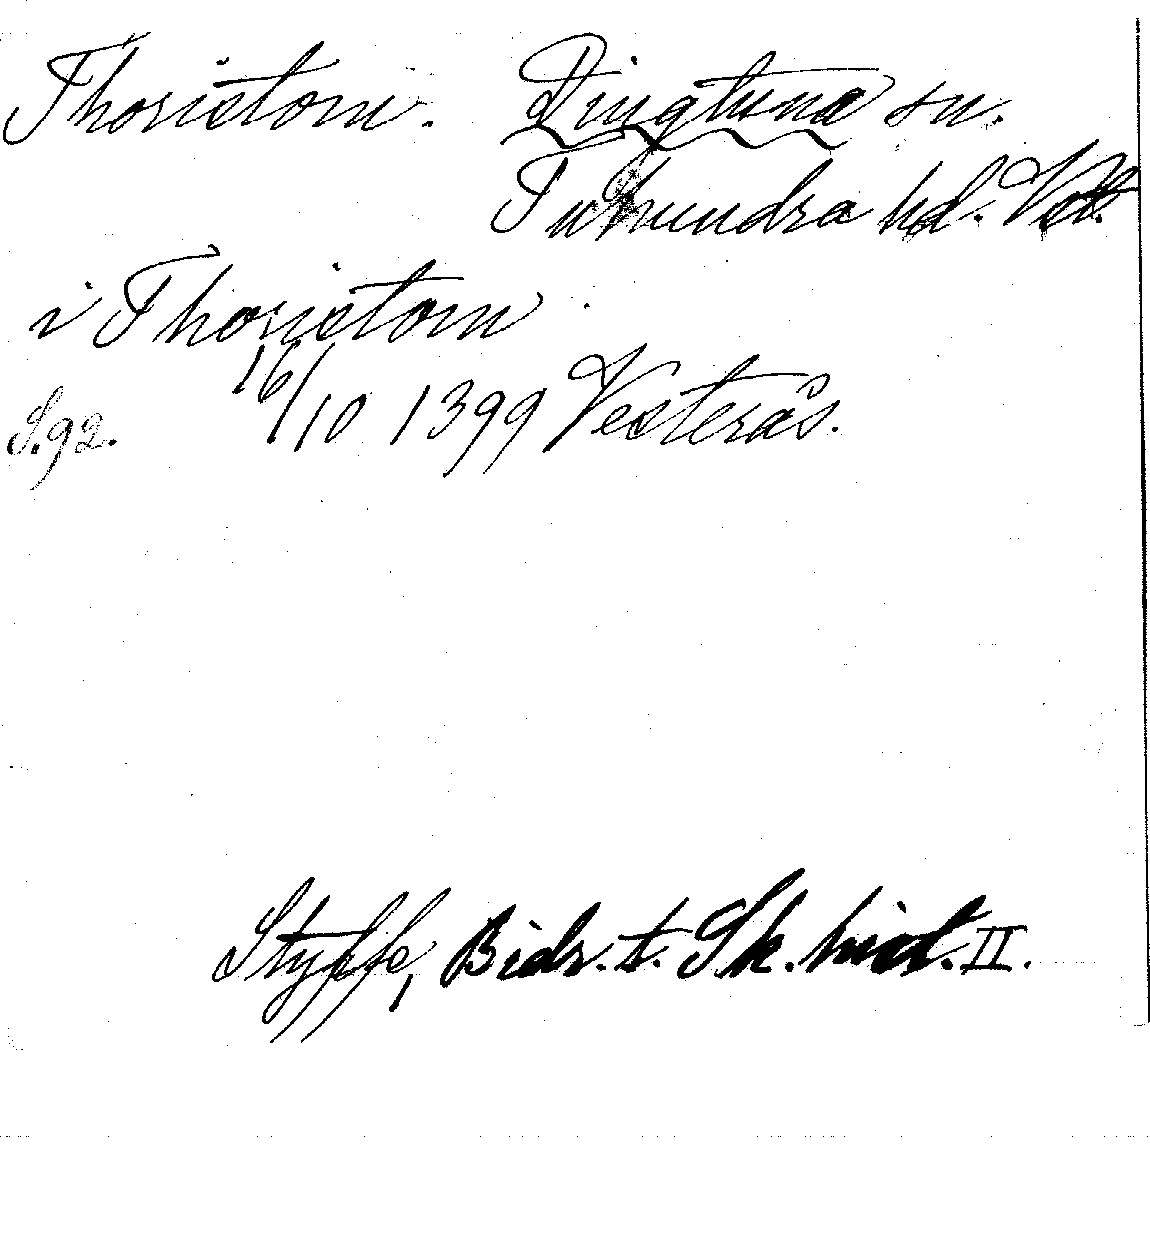 Thorietom. Dingtuna sn.
Tuhundra hd. Vstm.
i Thorietom
16/10 1399 Vesterås.
S. 92.
Styffe, Bidr. t. Sk. hist. II.